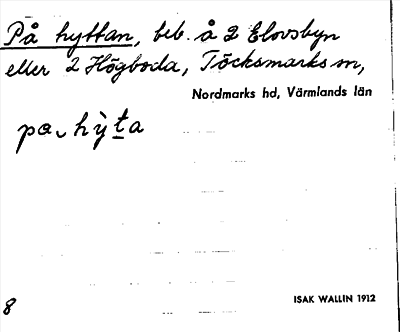 På hyttan, beb. å 2 Elovsbyn
eller 2 Högboda, Töcksmarks sn,
Nordmarks hd, Värmlands län
pa hy̆ta
8
ISAK WALLIN 1912